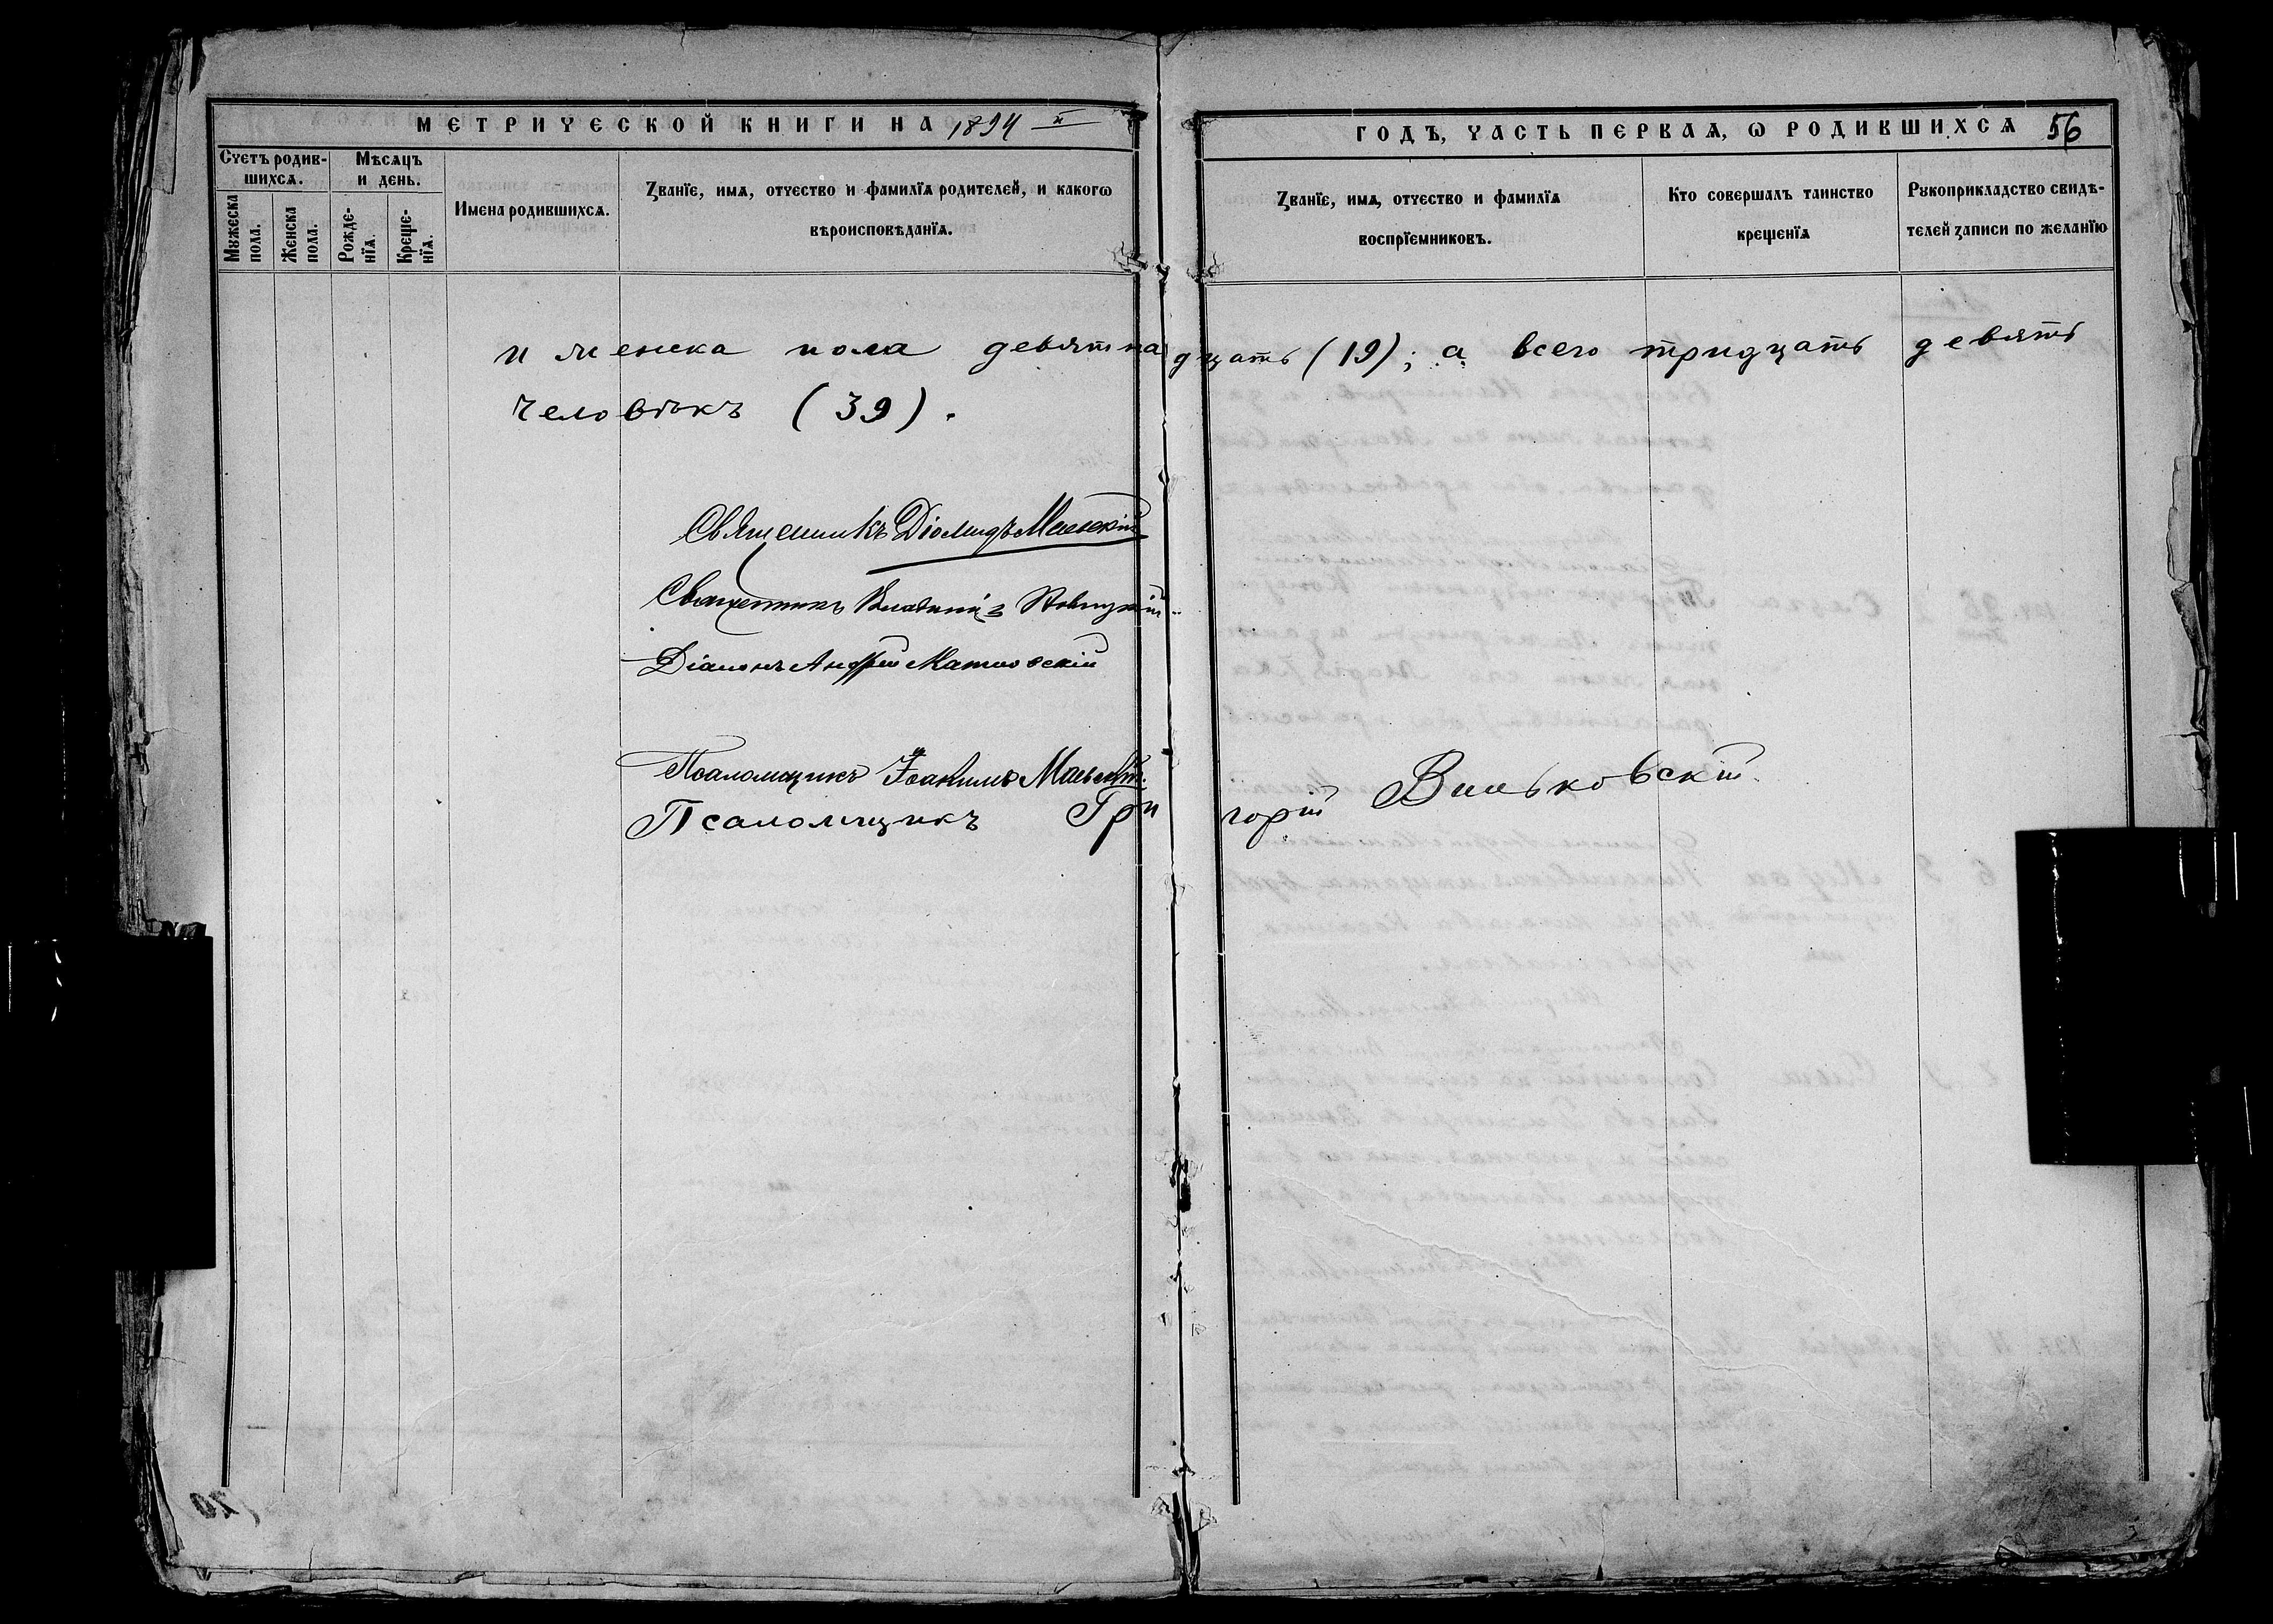 МЕТРИЧЕСКОЙ КНИГИ НА 1894 й ГОДЪ, ЧАСТЬ ПЕРВАѦ, Ѡ РОДИВШИХСѦ 56
Счетъ родившихсѧ.
Мужеска пола.
Женска пола.
Мѣсѧцъ и день.
Рожденїѧ.
Крещенїѧ.
Имена родившихсѧ.
Званїе, имѧ, отчество и фамилїѧ родителей, и какогѡ вѣроисповѣданїѧ.
Званїе, имѧ, отчество и фамилїѧ воспрїемниковъ.
Кто совершалъ таинство крещенїѧ
Рукоприкладство свидѣтелей записи по желанїю
и женска пола девятнадцать (19); а всего тридцать девять
человѣкъ (39).
Священникъ Діомидъ Маевскій
Священникъ Новицкій
Діаконъ Андрей
Псаломщикъ Іоакимъ Маевскій.
Псаломщикъ Григорій Вильковскій.